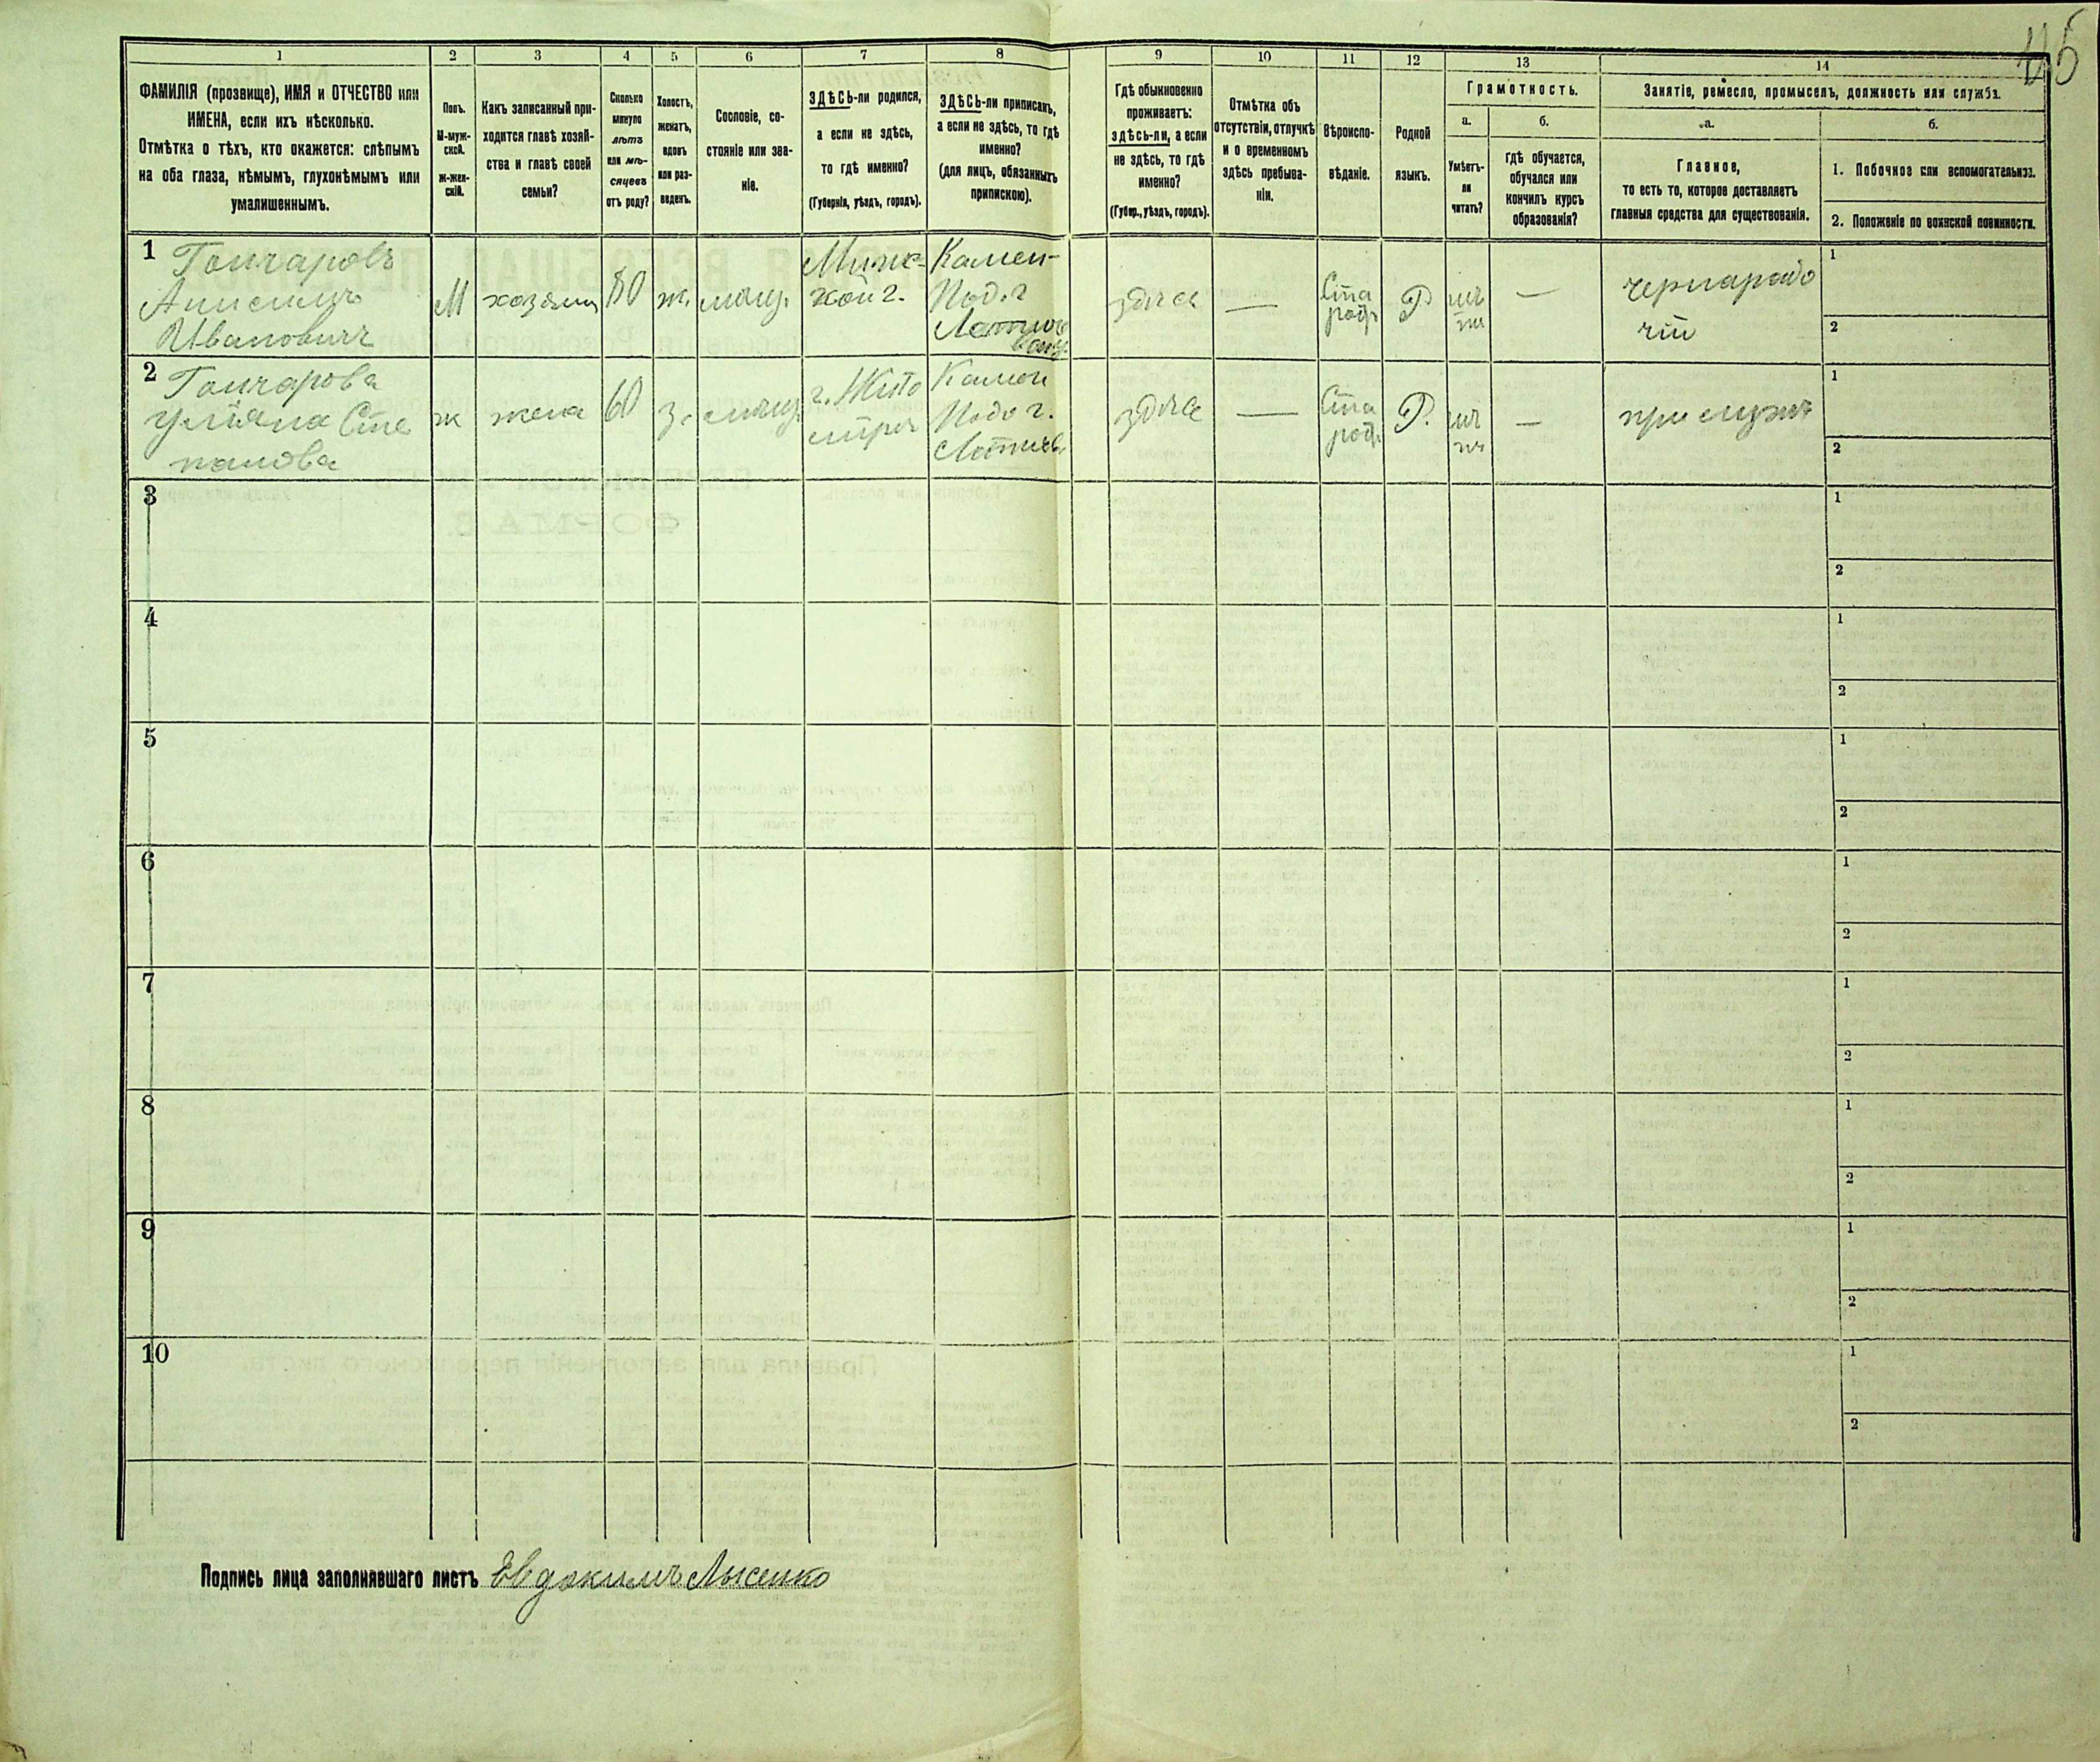 115
1
2
3
4
5
6
7
8
9
10
11
12
13
14
ФАМИЛІЯ (прозвище), ИМЯ и ОТЧЕСТВО или
ИМЕНА, если ихъ нѣсколько.
Отмѣтка о тѣхъ, кто окажется: слѣпымъ
на оба глаза, нѣмымъ, глухонѣмымъ или
умалишеннымъ.
Полъ.
М-муж-
ской.
Ж-жен-
скій.
Какъ записанный при-
ходится главѣ хозяй-
ства и главѣ своей
семьи?
Сколько
минуло
лѣтъ
или мѣ-
сяцевъ
отъ роду?
Холостъ,
женатъ,
вдовъ
или раз-
веденъ.
Сословіе, со-
стояніе или зва-
ніе.
ЗДѢСЬ-ли родился,
а если не здѣсь,
то гдѣ именно?
(Губернія, уѣздъ, городъ).
ЗДѢСЬ-ли приписанъ,
а если не здѣсь, то гдѣ
именно?
(для лицъ, обязанныхъ
припискою).
Гдѣ обыкновенно
проживаетъ:
здѣсь-ли, а если
не здѣсь, то гдѣ
именно?
(Губер., уѣздъ, городъ).
Отмѣтка объ
отсутствіи, отлучкѣ
и о временномъ
здѣсь пребыва-
ніи.
Вѣроиспо-
вѣданіе.
Родной
языкъ.
Грамотность.
а.
Умѣетъ-
ли
читать?
б.
Гдѣ обучается,
обучался или
кончилъ курсъ
образованія?
Занятіе, ремесло, промыселъ, должность или служба.
а.
Главное,
то есть то, которое доставляетъ
главныя средства для существованія.
б.
1. Побочное или вспомогательное.
2. Положеніе по воинской повинности.
1
Гончаровъ
Анисимъ
Ивановичъ
М
хозяинъ
80
ж.
мѣщ.
кой г.
Камен-
Под. г
здѣсь
—
Ста
роф
Р
—
чернарабо
чій
1
2
2
Гончарова
Уліяна Сте
панова
ж
жена
60
з.
мѣщ.
г. Жито
миръ
Камен
Подо г.
здѣсь
—
Ста
роф.
Р.
—
при мужѣ
1
2
3
1
2
4
1
2
5
1
2
6
1
2
7
1
2
8
1
2
9
1
2
10
1
2
Подпись лица заполнявшаго листъ Евдокимъ Лысенко